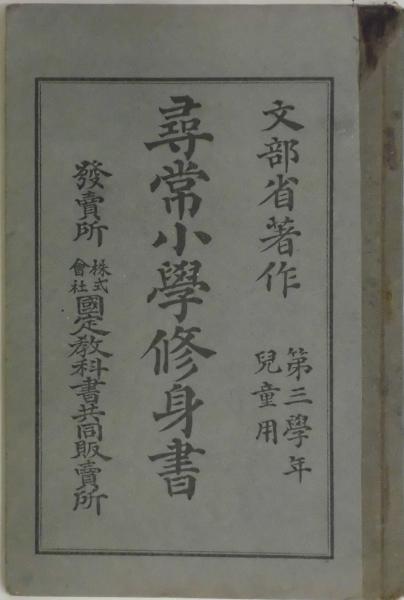 文部省著作
第三學年
兒童用
尋常小學修身書
發賣所 株式會社國定教科書共同販賣所